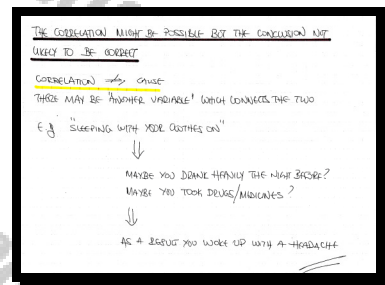 THE CORRELATION MIGHT BE POSSIBLE BUT THE CONCLUSION NOT
LIKELY TO BE CORRECT
CORRELATION ≠> CAUSE
THERE MAY BE "ANOTHER VARIABLE" WHICH CONNECTS THE TWO
E.g "SLEEPING WITH YOUR CLOTHES ON"
⇓
MAYBE YOU DRANK HEAVILY THE NIGHT BEFORE?
MAYBE YOU TOOK DRUGS/MEDICINES?
⇓
AS A RESULT YOU WOKE UP WITH A HEADACHE